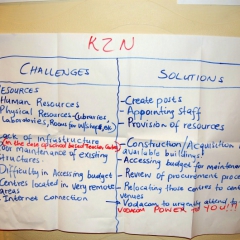 KZN
CHALLENGES
RESOURCES
Human Resources
Physical Resources - Libraries,
Laboratories, Room for
Lack of infrastructure
(in the case of school based Teacher Centres)
Poor maintenance of existing
structures.
Difficulty in Accessing budget
Centres located in very remote
areas
Internet connection
SOLUTIONS
- Create posts
- Appointing staff
- Provision of resources
- Construction/Acquisition of
available buildings
Accessing budget for maintenance
- Review of procurement process
- Relocating those centres to central
venues
- Vodacom to urgently attend to
VODACOM POWER TO YOU!!!